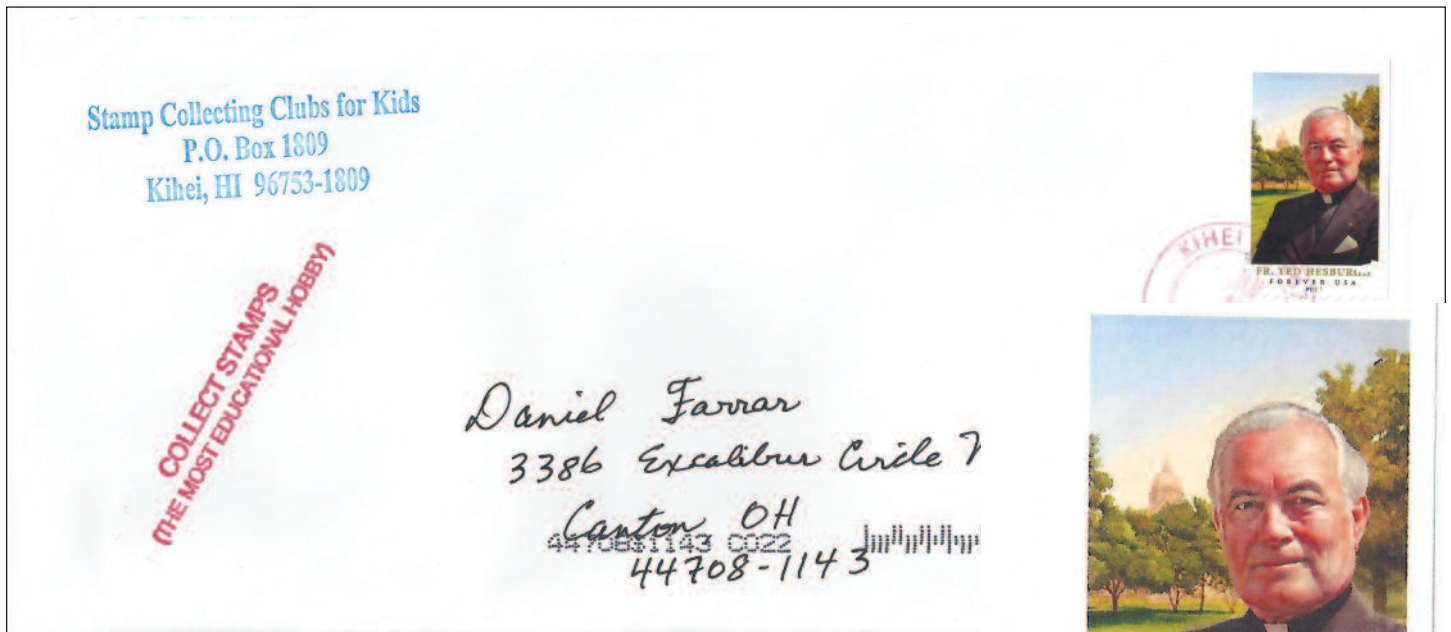 Stamp Collecting Clubs for Kids
P.O. Box 1809
Kihei, HI 96753-1809
COLLECT STAMPS
(THE MOST EDUCATIONAL HOBBY)
KIHEI
FR. TED HESBURGH
FOREVER USA
2017
Daniel Farrar
3386 Excalibur Circle N
Canton OH
44708$1143 C022
44708-1143